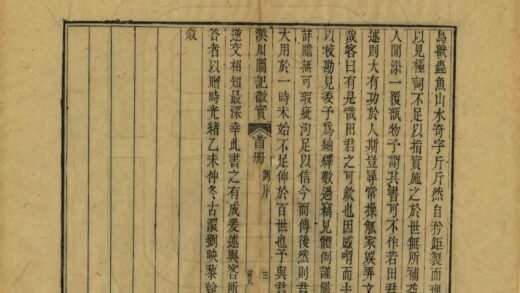 鳥獸蟲魚山水奇字斤斤然自矜鉅製而理
以見極詞不足以指實施之於世無所補益
人間添一覆瓿物予謂其書可不作若田君
述則大有功於人斯豈尋常操觚家娛弄文
哉客曰有是哉田君之可欽也因敬唶而去
以校勘見委予為紬釋數過竊見體例謹嚴
詳贍無可瑕疵洵足以信今而傳後然則君
大用於一時未始不足伸於百世也予與君
首冊
劉序
三
逆交相知最深幸此書之有成爰述與客所
答者以贈時光緒乙未仲冬古瀠劉映藜翰
敘